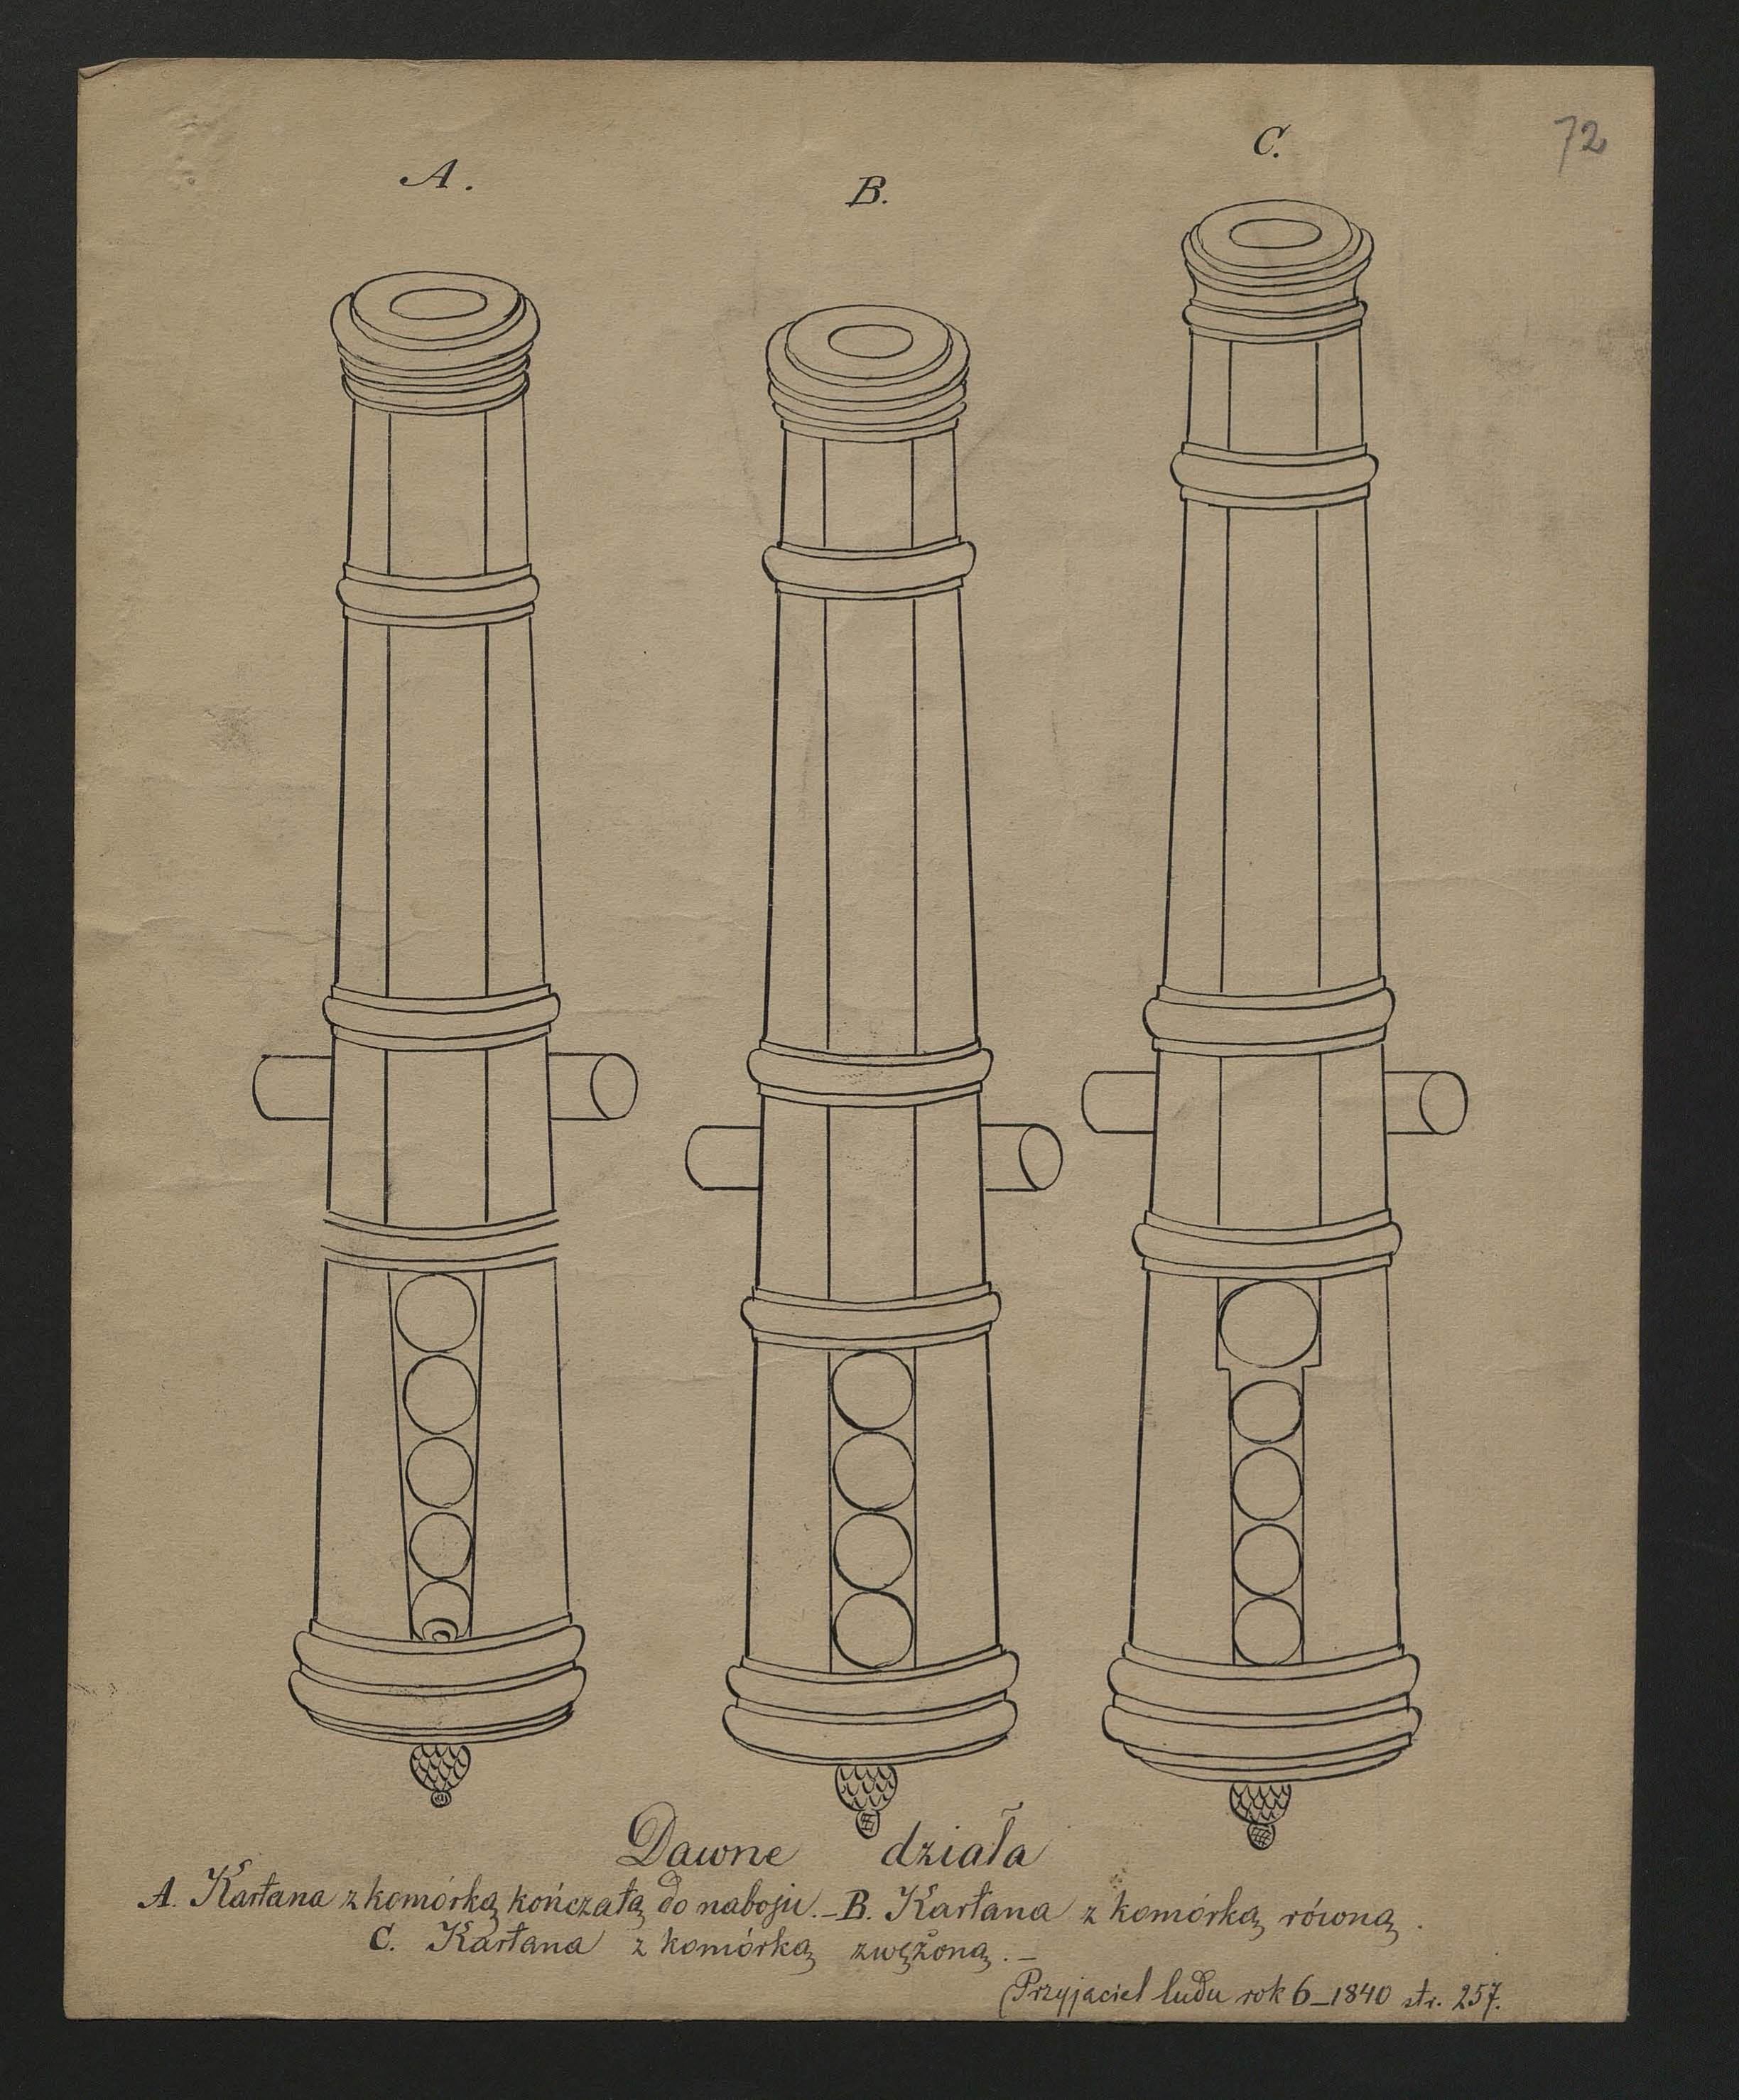 72
A.
B.
C.
Dawne działa
A. Kartana z komórką kończatą do naboju. – B. Kartana z komórką równą.
C. Kartana z komórką zwężoną. –
(Przyjaciel ludu rok 6 – 1840 str. 257.